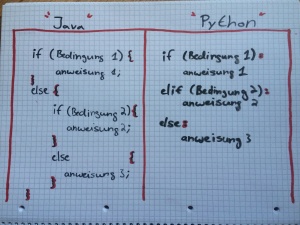 "Java"
if (Bedingung 1) {
anweisung 1;
}
else {
if (Bedingung 2) {
anweisung 2;
}
else {
anweisung 3;
}
}
"Python"
if (Bedingung 1):
anweisung 1
elif (Bedingung 2):
anweisung 2
else:
anweisung 3